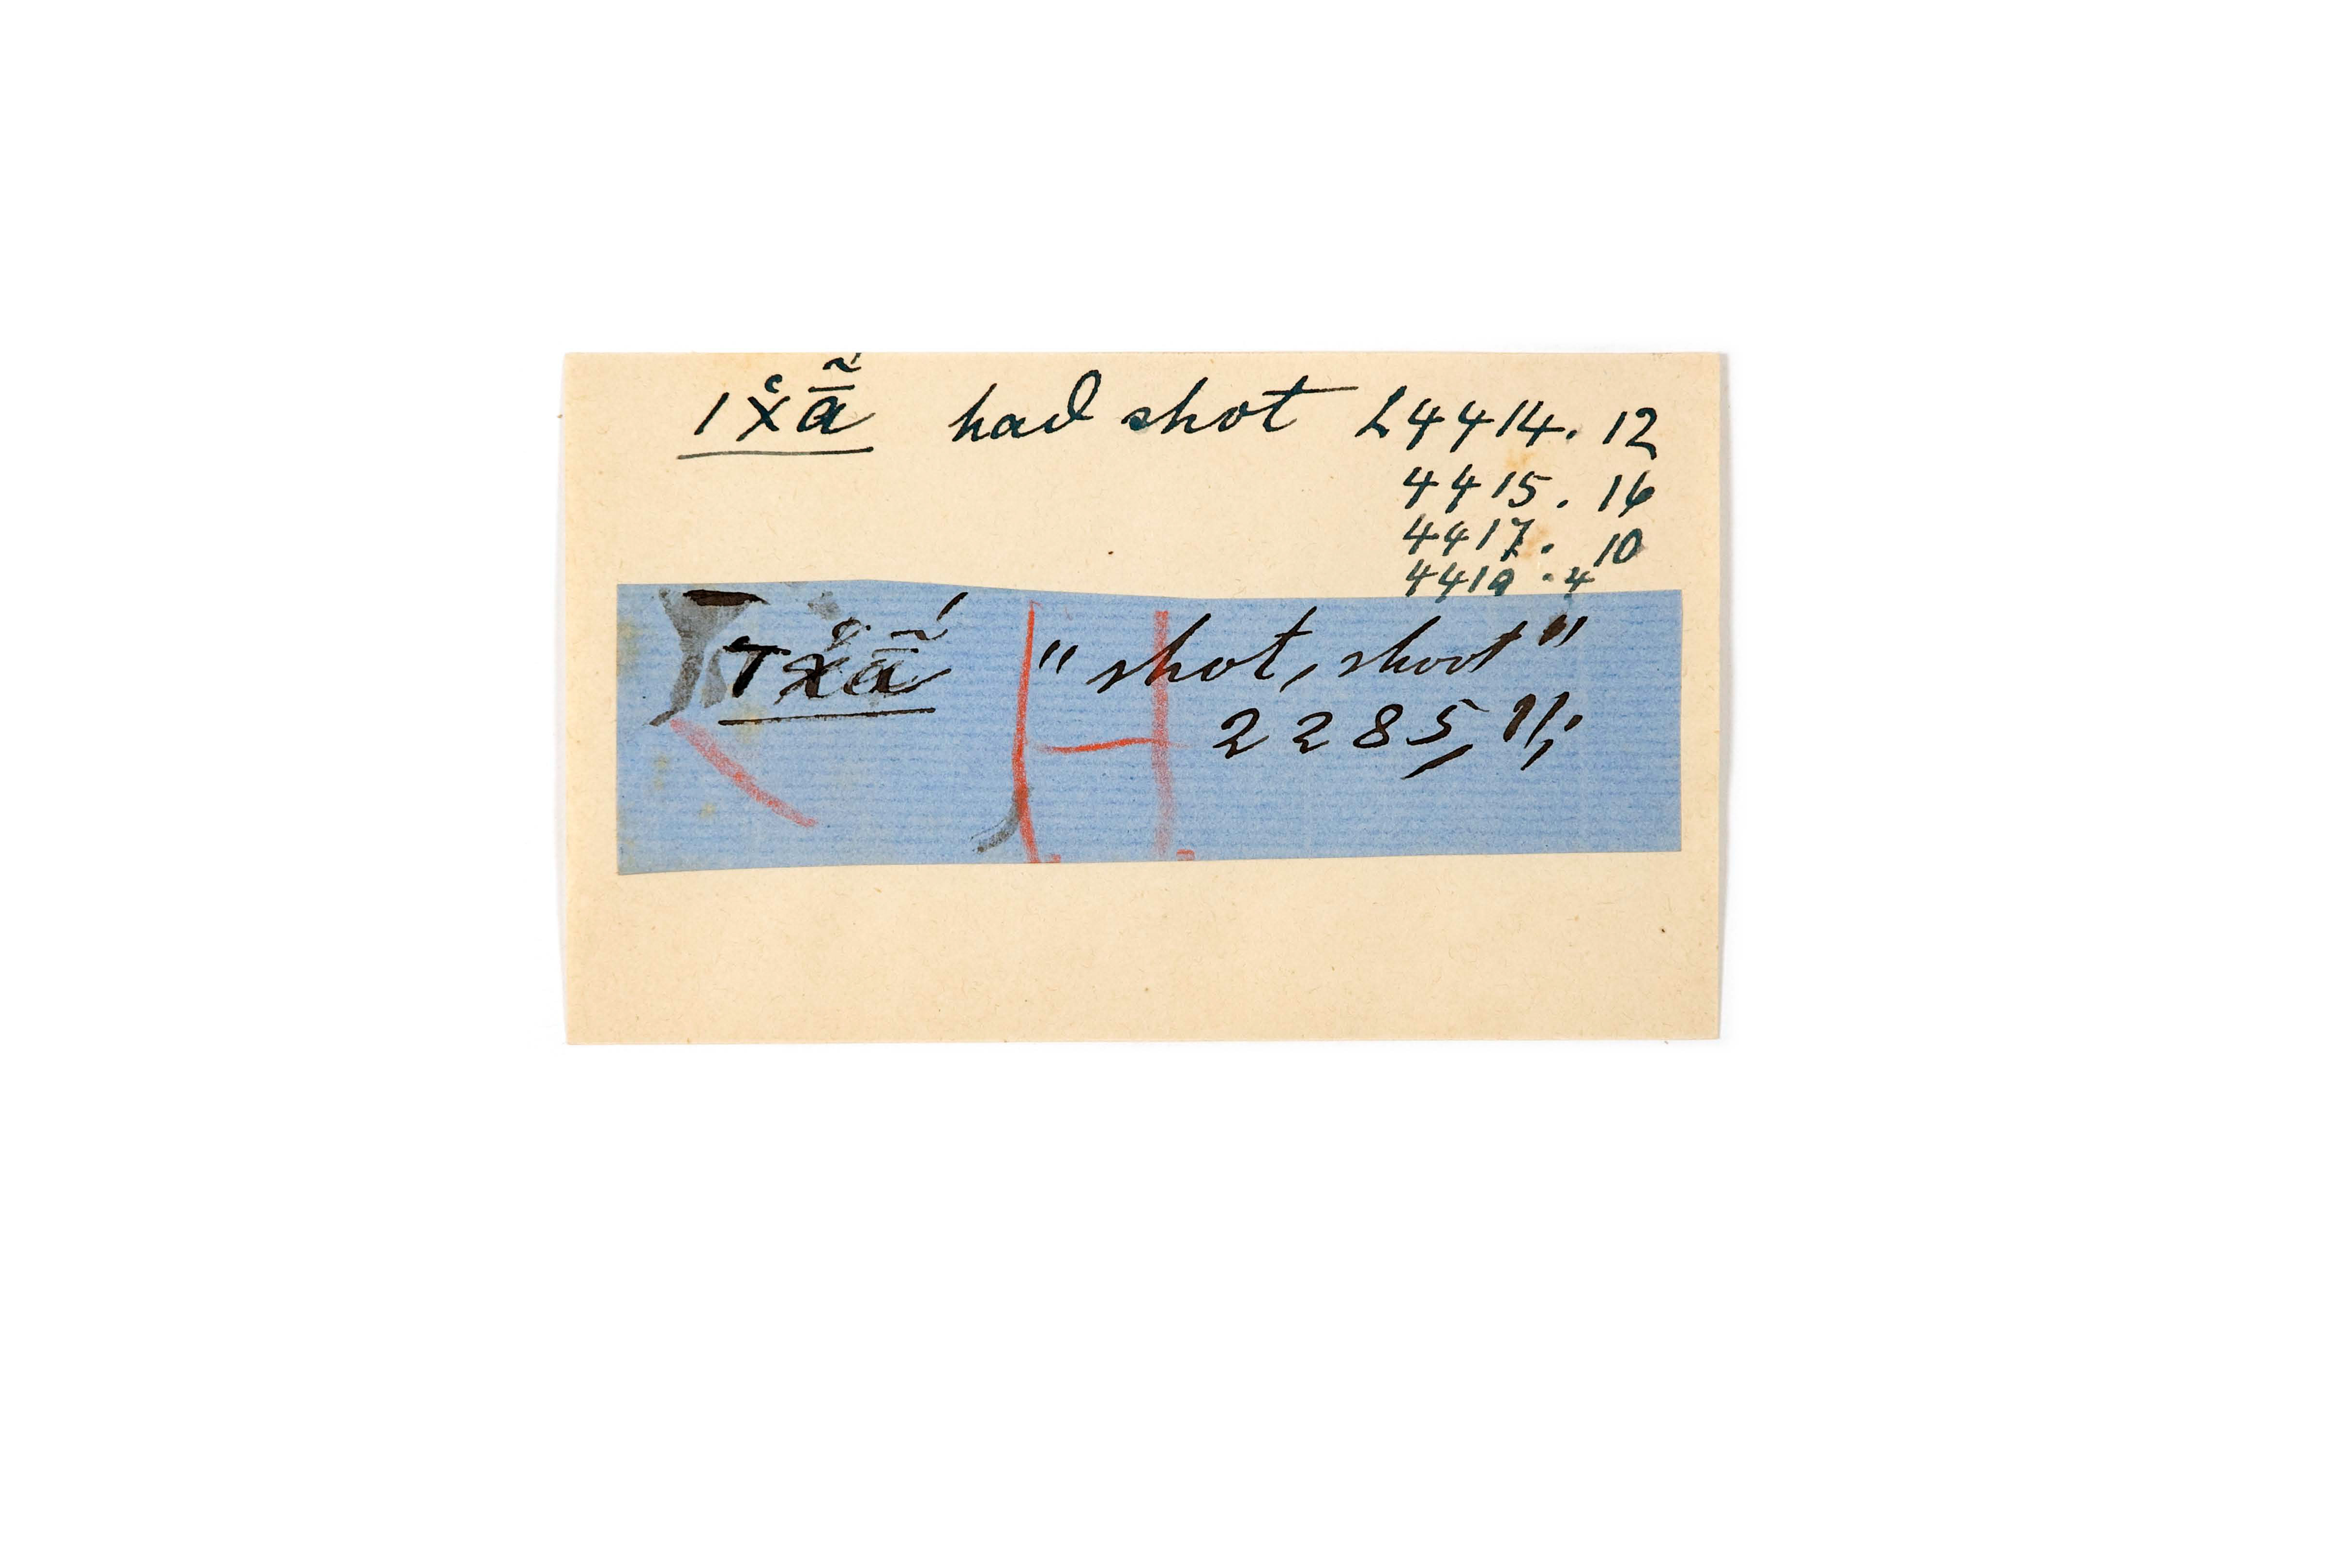 /x̌ā̃ had shot L 4414. 12
4415. 16
4417. 10
4419. 4
"shot, shoot"
2285,